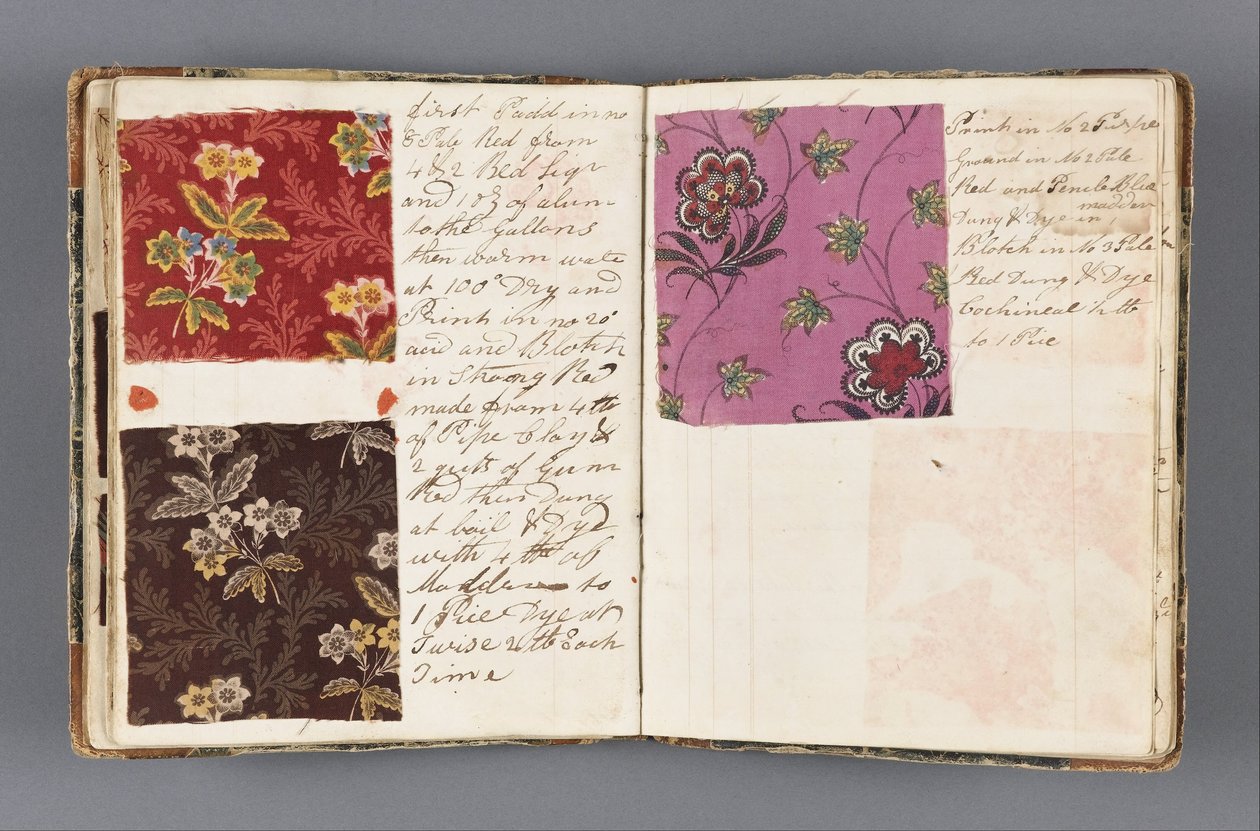 first Padd in no
6 Pale Red from
4 & 2 Red Liqr
and 10℥ of alum
to the gallons
then warm wate
at 100° Dry and
Print in no 20
acid and Blotch
in Strong Red
made from 4 ℔
of Pipe Clay &
2 qurts of Gum
Red then Dung
at boil & Dye
with 4 ℔ of
Madder to
1 Pice Dye at
Twise 2 ℔ Each
Time
Print in No 2 Purple
Ground in No 2 Pale
Red and Pencil Blue
Dung & Dye in madder
Blotch in No 3 Pale
Red Dung & Dye
Cochineal ½ ℔
to 1 Pice